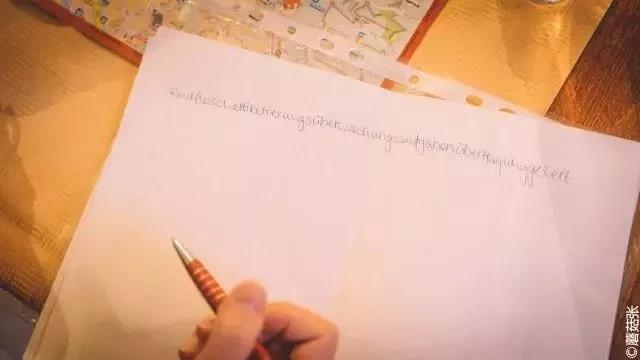 Rindfleischettiketierungsüberwachungsaufgabenübertragunggesetz
©蘑菇张